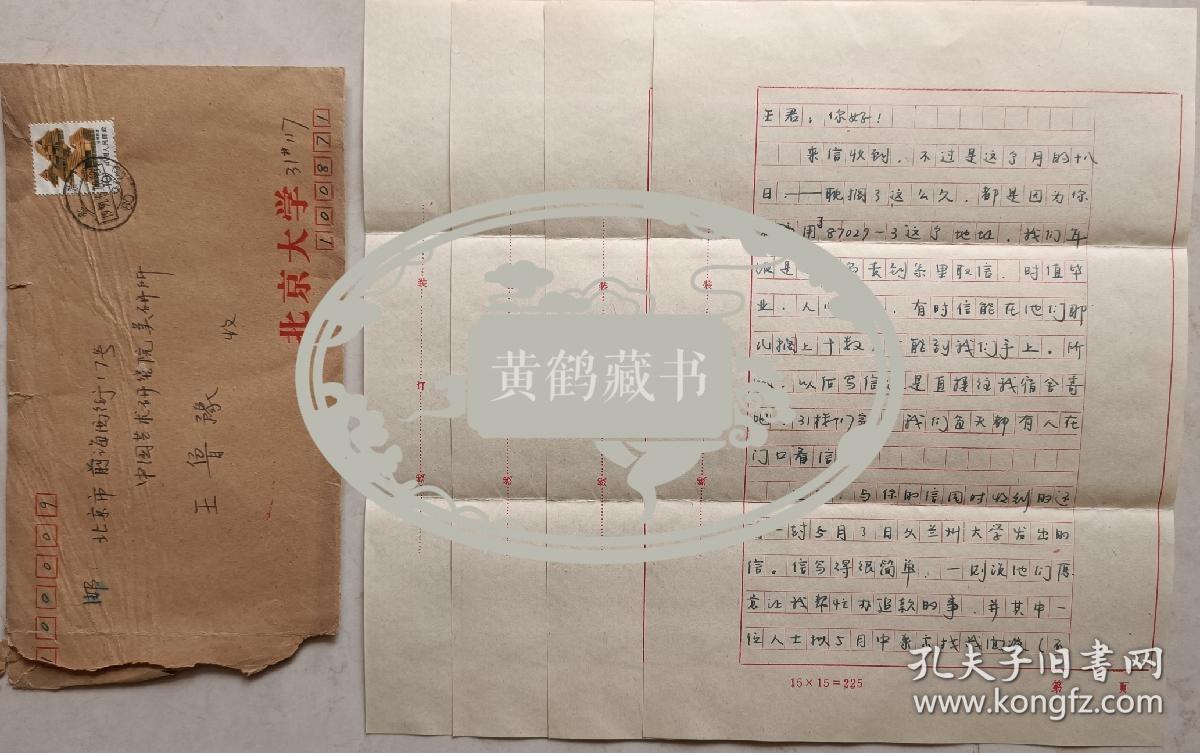 100009
邮: 北京市前海西街17号
中国艺术研究院美研所
王鲁豫
收
北京大学 31# 117
100871
中国人民邮政
装
订
线
装
订
线
装
订
线
装
线
王君：你好！
来信收到，不过是这个月的十八
日，——耽搁了这么久，都是因为你
用了87029-3这个地址，我们年
是 负责到系里取信，时值毕
业，人 ，有时信能在他们那
儿搁上十数 能到我们手上。所
以后写信 是直接往我宿舍寄
吧，31楼117室 我们每天都有人在
门口看信
与你的信同时收到的还
一封5月3日从兰州大学发出的
信。信写得很简单，一则说他们愿
意让我帮忙办追款的事，并其中一
位人士拟5月中来京找我面谈（不
15×15=225
第 页
黄鹤藏书
孔夫子旧书网
www.kongfz.com